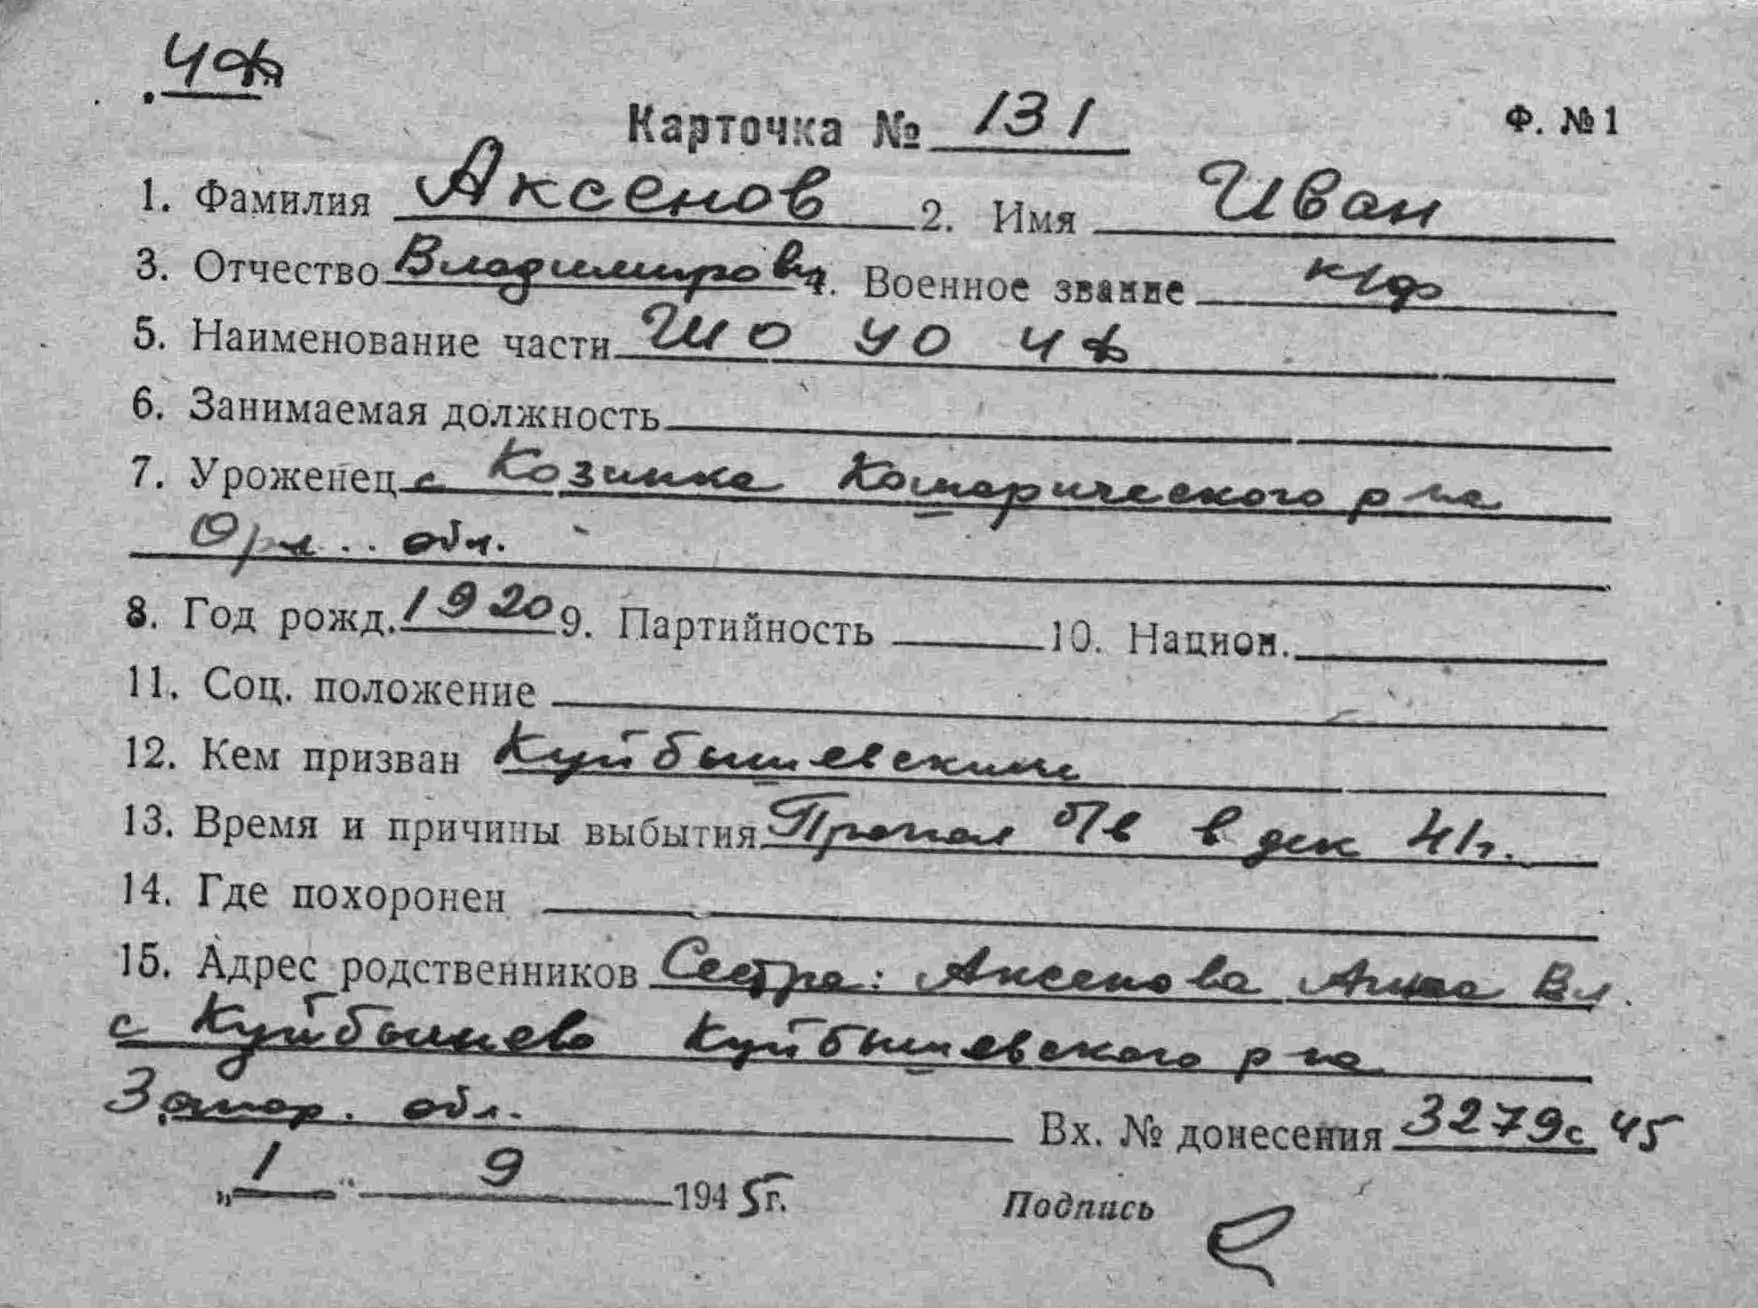 ЧФ
Карточка № 131 Ф. № 1
1. Фамилия Аксенов 2. Имя Иван
3. Отчество Владимирович 4. Военное звание к/ф
5. Наименование части ШО УО ЧФ
6. Занимаемая должность
7. Уроженец с Козинка Комарического р-на
Орл.. обл.
8. Год рожд. 1920 9. Партийность 10. Национ.
11. Соц. положение
12. Кем призван Куйбышевским
13. Время и причины выбытия Пропал б/в в дек 41г.
14. Где похоронен
15. Адрес родственников Сестра: Аксенова Анна Вл.
с Куйбышево Куйбышевского р-на
Запор. обл. Вх. № донесения 3279с 45
„1“ 9 1945г. Подпись